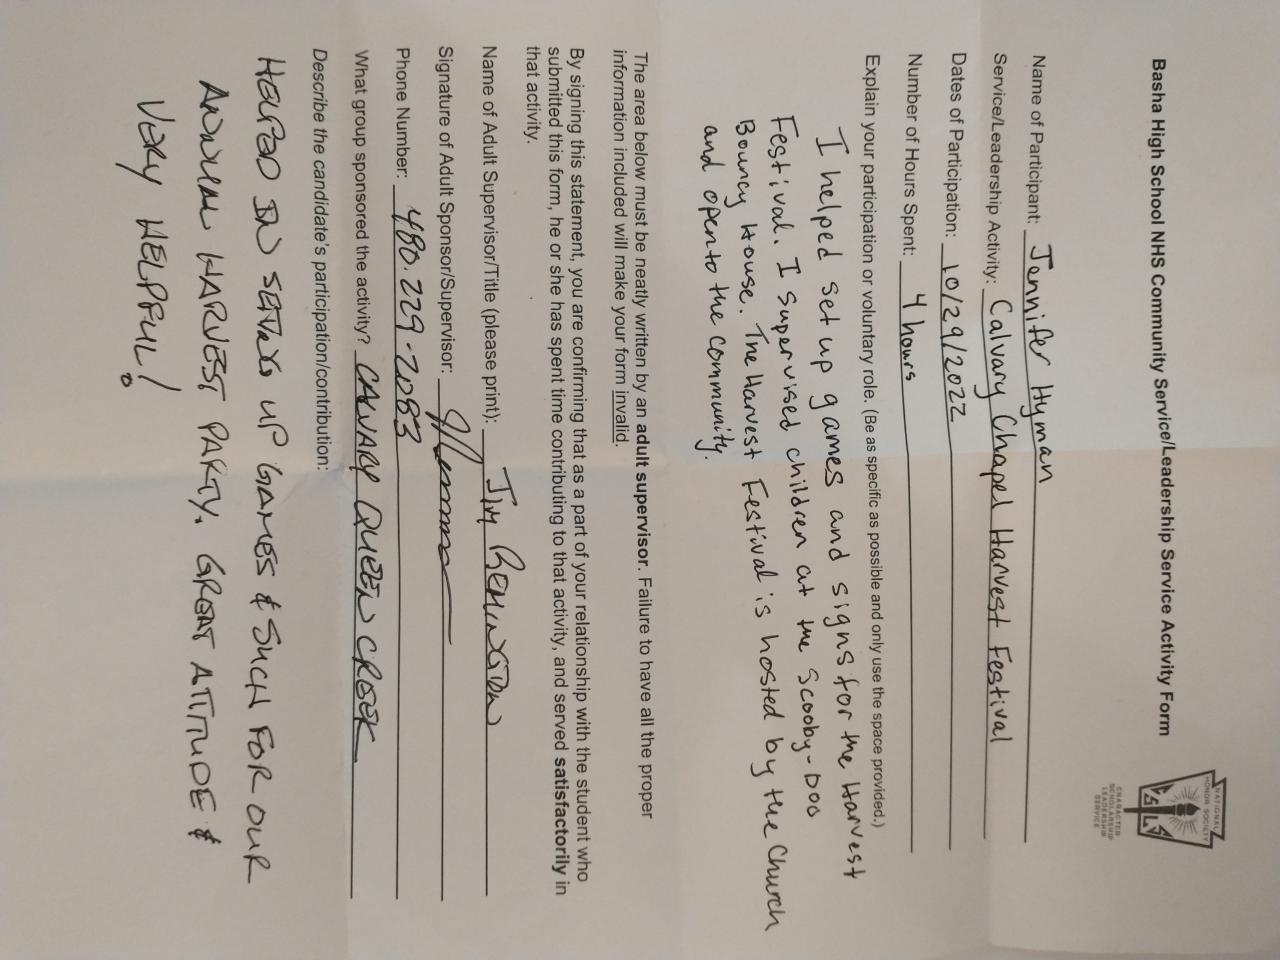 Basha High School NHS Community Service/Leadership Service Activity Form
NATIONAL
HONOR SOCIETY
CHARACTER
SCHOLARSHIP
LEADERSHIP
SERVICE
Name of Participant: Jennifer Hyman
Service/Leadership Activity: Calvary Chapel Harvest Festival
Dates of Participation: 10/29/2022
Number of Hours Spent: 4 hours
Explain your participation or voluntary role. (Be as specific as possible and only use the space provided.)
I helped set up games and signs for the Harvest
Festival. I supervised children at the Scooby-Doo
Bouncy House. The Harvest Festival is hosted by the church
and open to the community.
The area below must be neatly written by an adult supervisor. Failure to have all the proper
information included will make your form invalid.
By signing this statement, you are confirming that as a part of your relationship with the student who
submitted this form, he or she has spent time contributing to that activity, and served satisfactorily in
that activity.
Name of Adult Supervisor/Title (please print): JIM
Signature of Adult Sponsor/Supervisor:
Phone Number: 480.229-2083
What group sponsored the activity? CALVARY QUEEN CREEK
Describe the candidate's participation/contribution:
HELPED IN SETTING UP GAMES & SUCH FOR OUR
ANNUAL HARVEST PARTY. GREAT ATTITUDE &
VERY HELPFUL!